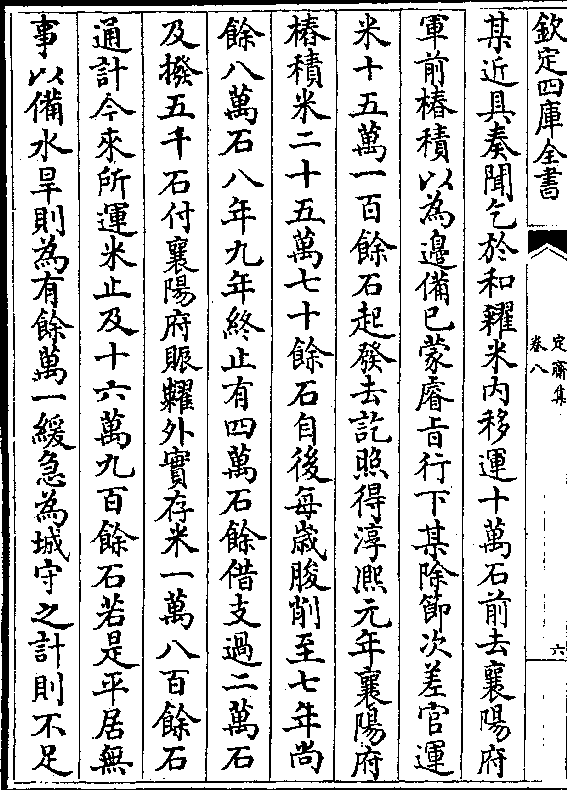 欽定四庫全書
定齋集
卷八
六
某近具奏聞乞於和糴米内移運十萬石前去襄陽府
軍前樁積以為邊備已蒙睿旨行下某除節次差官運
米十五萬一百餘石起發去訖照得淳熙元年襄陽府
樁積米二十五萬七十餘石自後每歲朘削至七年尚
餘八萬石八年九年終止有四萬石餘借支過二萬石
及撥五千石付襄陽府賑糶外實存米一萬八百餘石
通計今來所運米止及十六萬九百餘石若是平居無
事以備水旱則為有餘萬一緩急為城守之計則不足